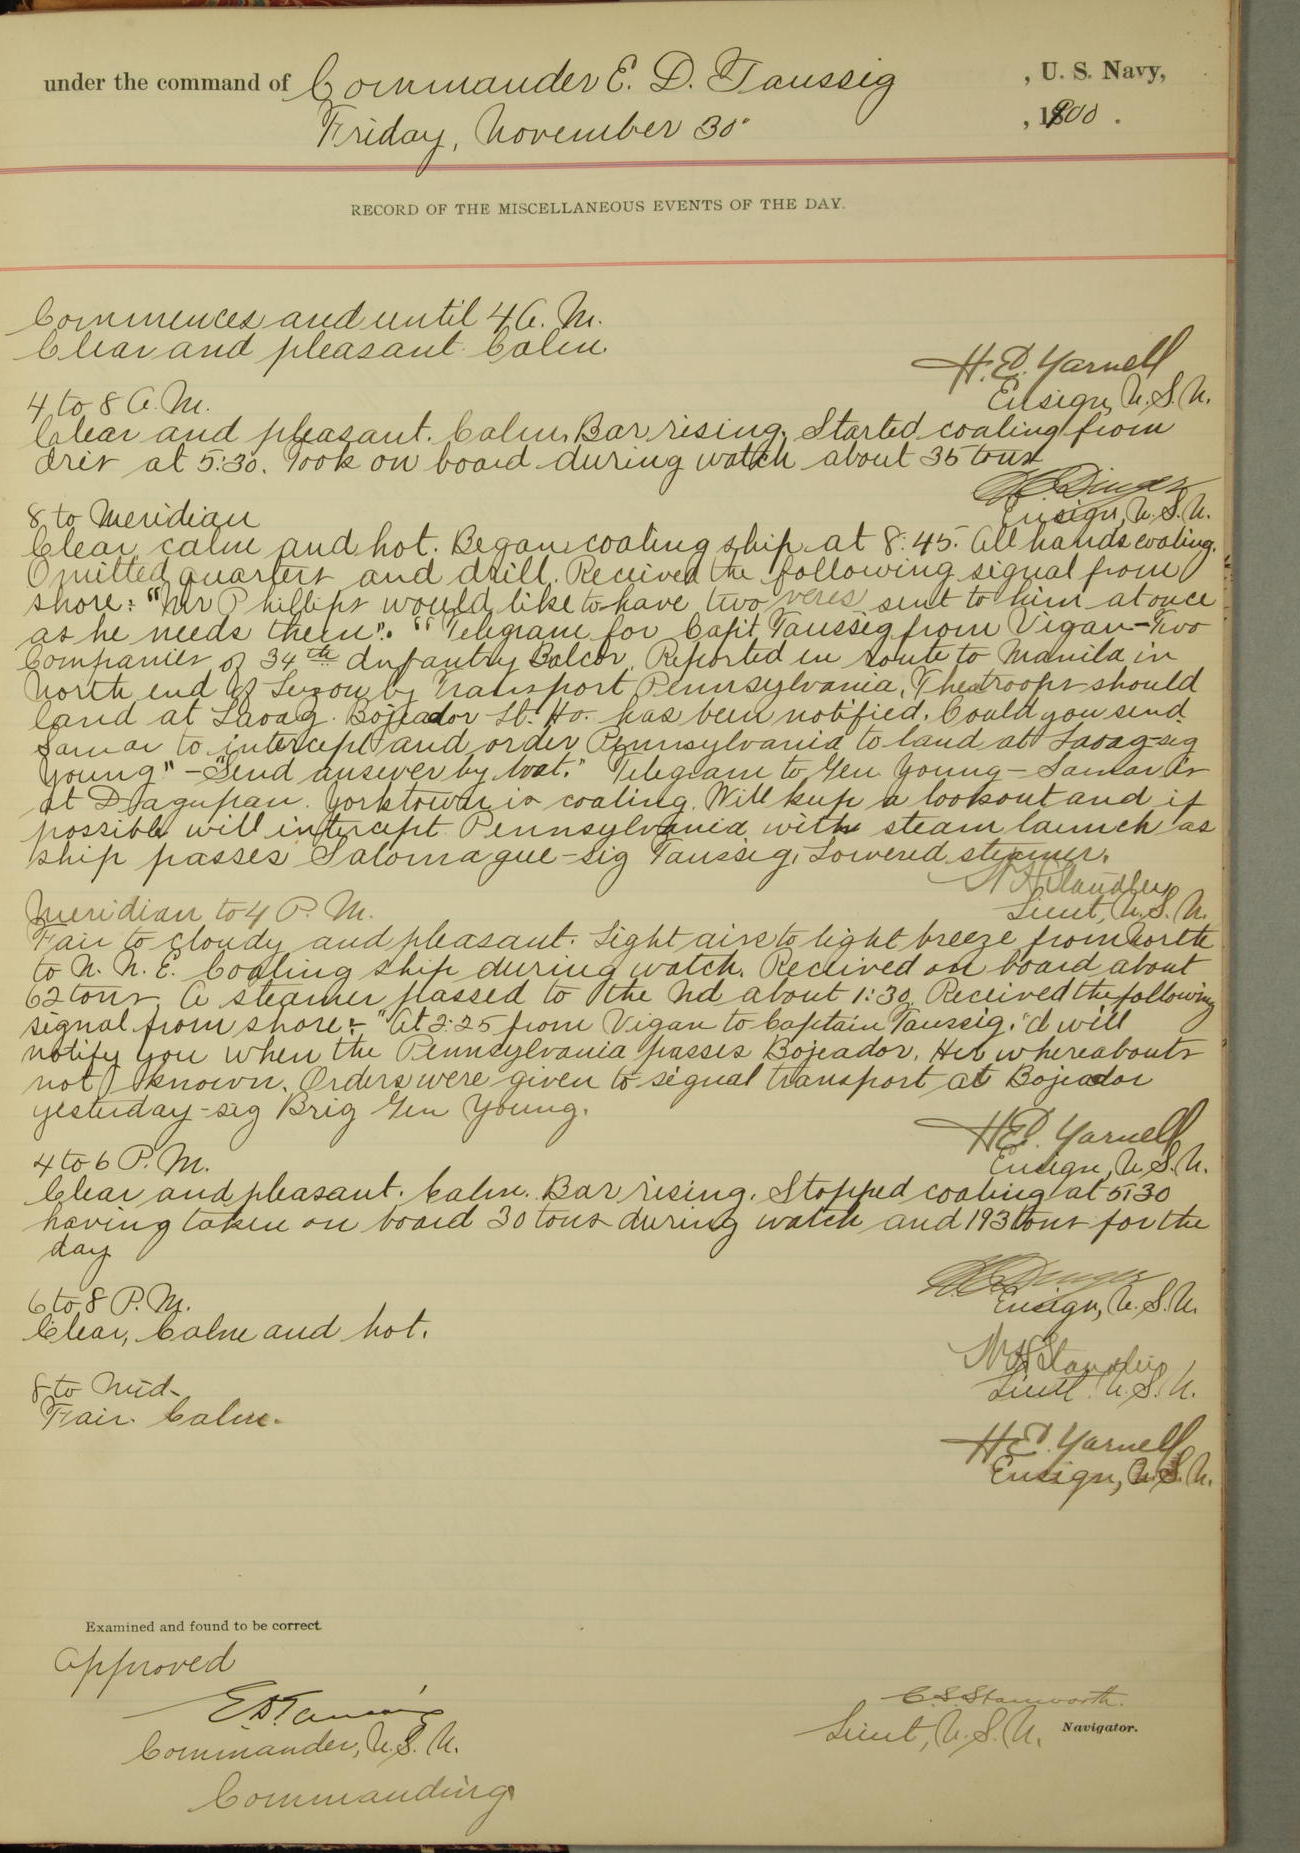 under the command of Commander E. D. Taussig , U. S. Navy,
Friday, November 30" , 1900 .
RECORD OF THE MISCELLANEOUS EVENTS OF THE DAY.
Commences and until 4 A. M.
Clear and pleasant. Calm.
H. E. Yarnell
Ensign, U. S. N.
4 to 8 A. M.
Clear and pleasant. Calm. Bar rising. Started coaling from
at 5:30. Took on board during watch about 35 tons
Dinger
Ensign, U. S. N.
8 to Meridian
Clear, calm and hot. Began coaling ship at 8:45. All hands coaling.
Omitted quarters and drill. Received the following signal from
shore: "Mr Phillips would like to have two sent to him at once
as he needs them". "Telegram for Capt Taussig from Vigan - Two
Companies of 34th Infantry Reported en route to Manila in
North end of Luzon by Transport Pennsylvania. The troops should
land at Laoag. Bojeador Lt. Ho. has been notified. Could you send
Samar to intercept and order Pennsylvania to land at Laoag - sig
Young" - "Send answer by boat." Telegram to Gen Young - Samar is
at Dagupan. Yorktown is coaling. Will keep a lookout and if
possible will intercept Pennsylvania with steam launch as
ship passes Salomague - sig Taussig. Lowered steamer.
W H Standley
Lieut, U. S. N.
Meridian to 4 P. M.
Fair to cloudy and pleasant. Light airs to light breeze from North
to N. N. E. Coaling ship during watch. Received on board about
62 tons. A steamer passed to the Nd about 1:30. Received the following
signal from shore: - "At 2:25 from Vigan to Captain Taussig. "I will
notify you when the Pennsylvania passes Bojeador. Her whereabouts
not known. Orders were given to signal transport at Bojeador
yesterday - sig Brig Gen Young.
H E. Yarnell
Ensign, U. S. N.
4 to 6 P. M.
Clear and pleasant. Calm. Bar rising. Stopped coaling at 5:30
having taken on board 30 tons during watch and 193 tons for the
day
Dinger
Ensign, U. S. N.
6 to 8 P. M.
Clear, Calm and hot.
W H Standley
Lieut. U. S. N.
8 to Mid-
Fair. Calm.
H E. Yarnell
Ensign, U. S. N.
Examined and found to be correct.
Approved
E D Taussig
Commander, U. S. N.
Commanding
C. S. Stanworth.
Lieut, U. S. N. Navigator.